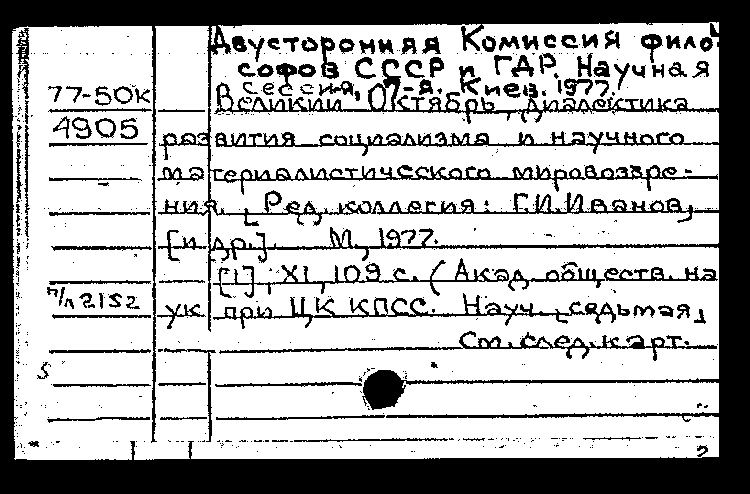 Двусторонняя Комиссия фило-
софов СССР и ГДР. Научная
сессия, 7-я. Киев. 1977.
77-50к Великий Октябрь, диалектика
4905 развития социализма и научного
материалистического мировоззре-
ния. [Ред. коллегия: Г.И. Иванов,
[и др.]. М., 1977.
[1], XI, 109 с. (Акад. обществ. на
п/п 2152 ук при ЦК КПСС. Науч. [седьмая]
См. след. карт.